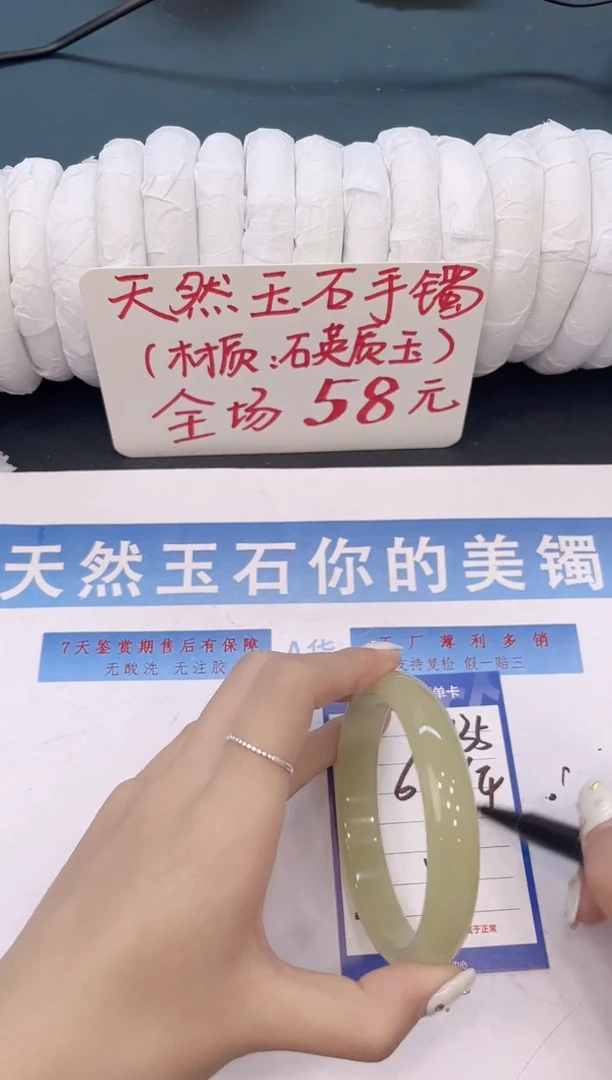 天然玉石手镯
(材质:石英质玉)
全场 58元
天然玉石你的美镯
7天鉴赏期售后有保障
无酸洗 无注胶
厂薄利多销
支持复检 假一赔三
单卡
于正常